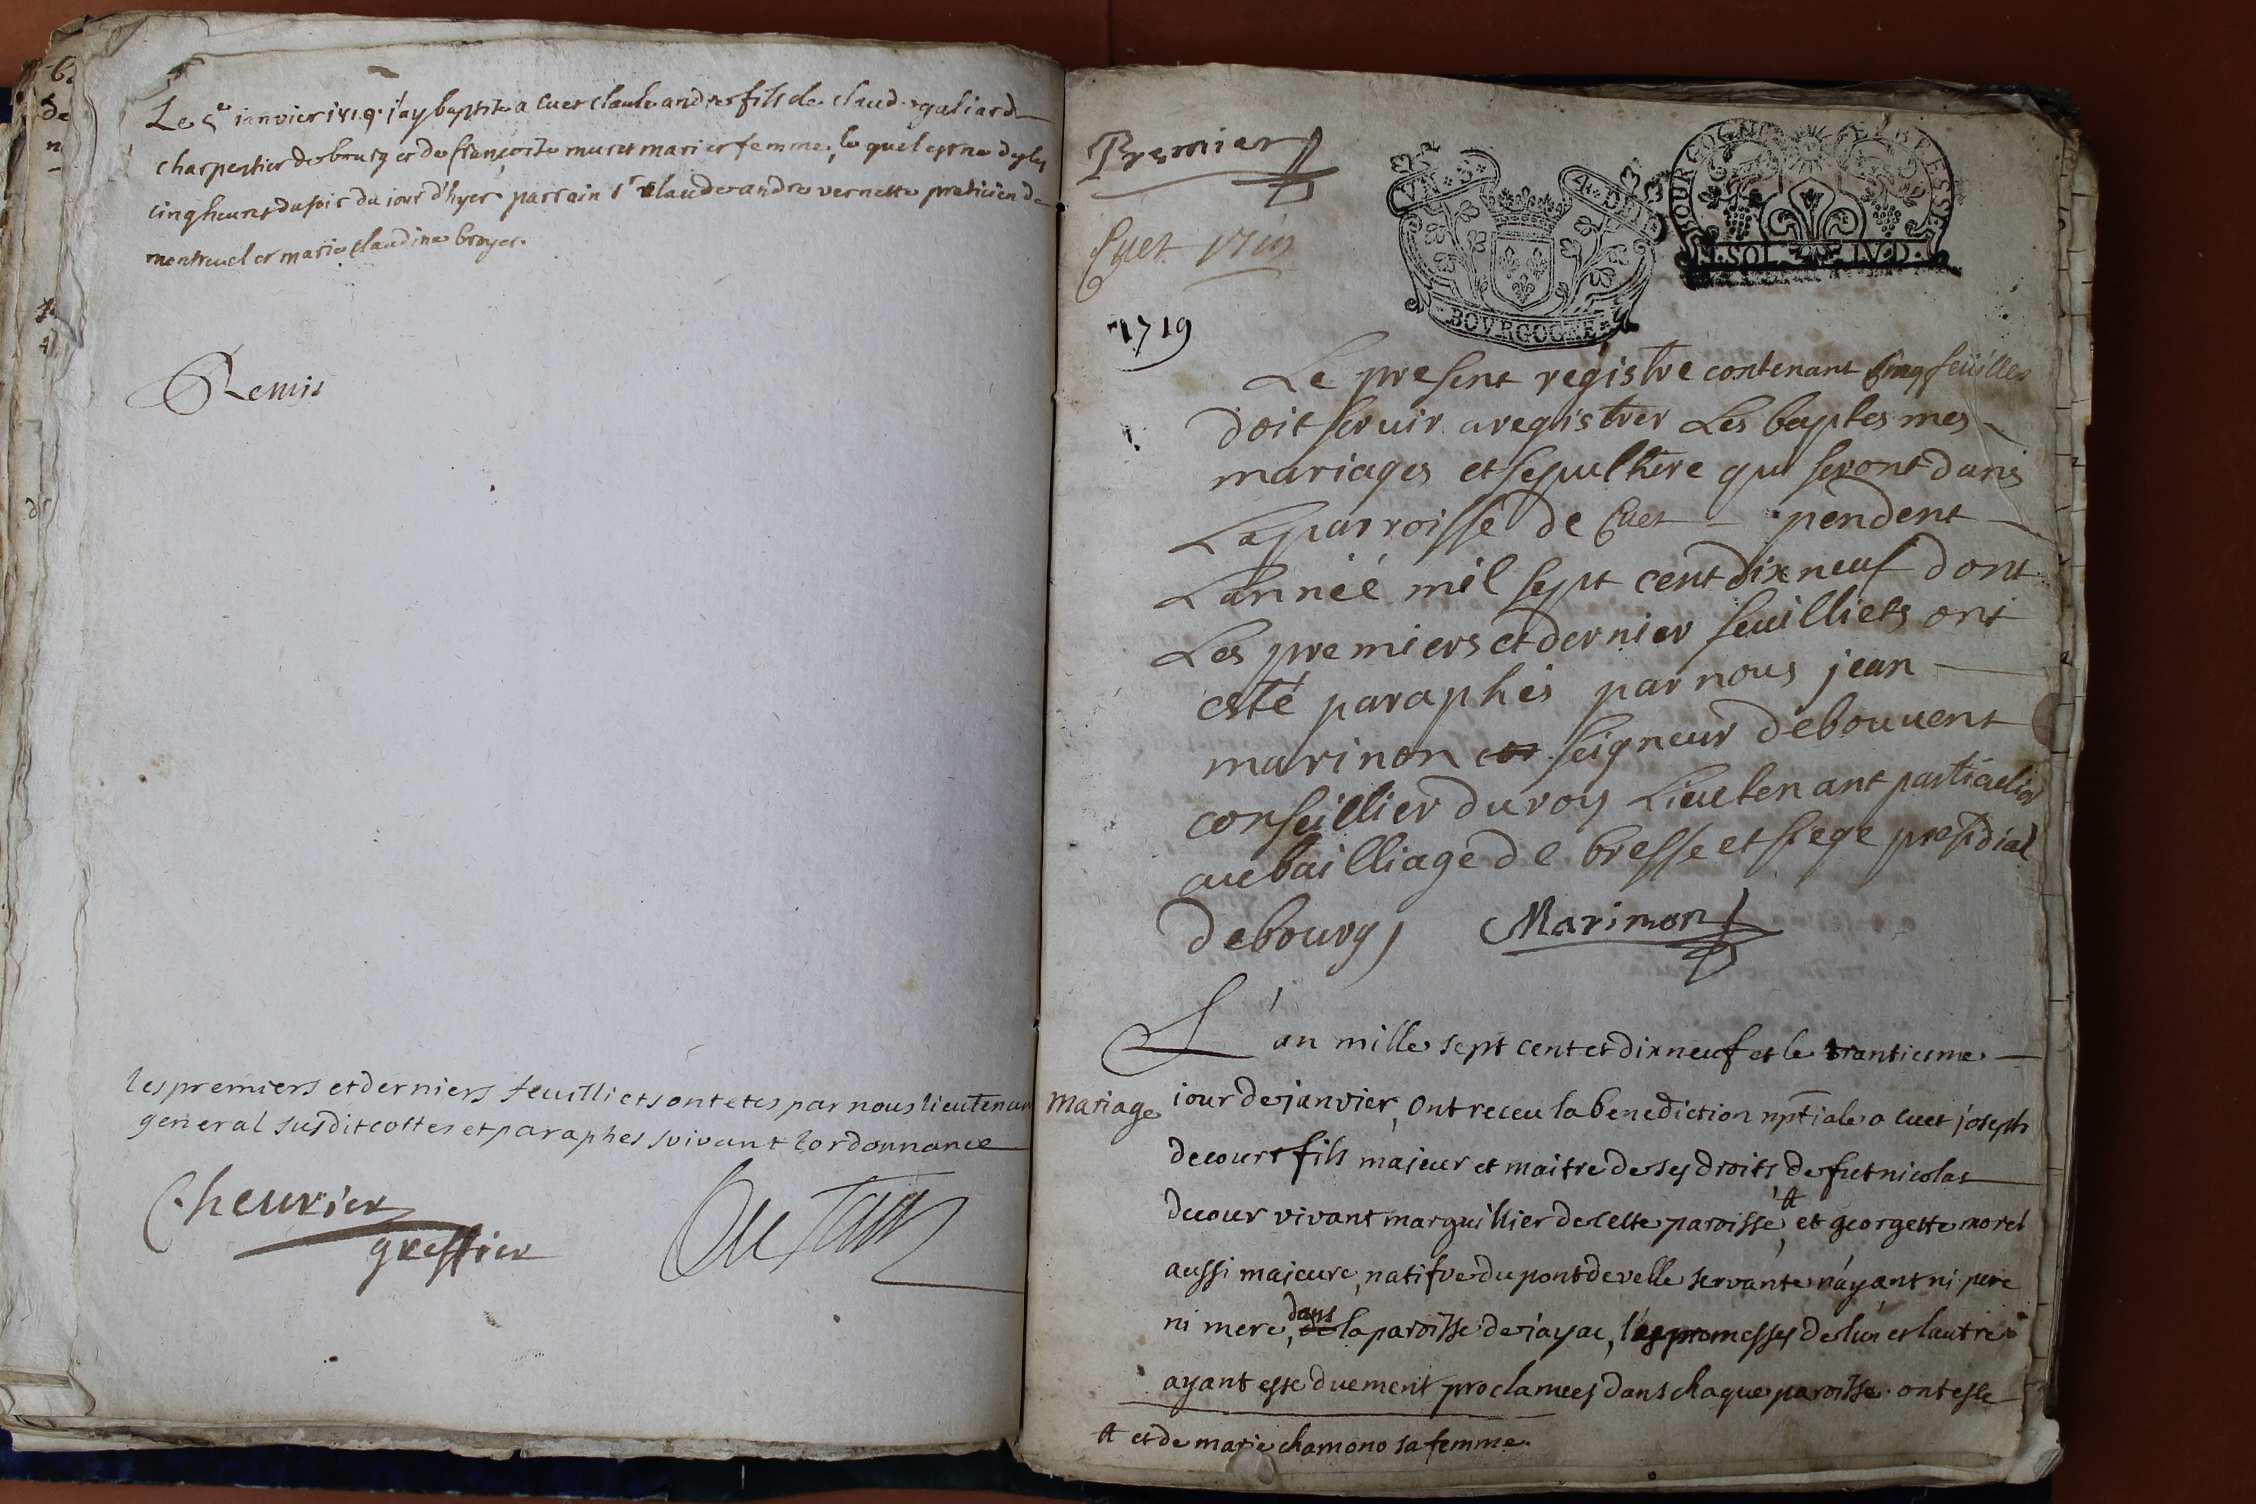 Le 5e ianvier 1719. j'ay baptisé a Cuet claude andre fils de claude galiard
charpentier de bourg et de françoise muret mari et femme, le quel est né des les
cinq heures du soir du jour d'hyer parrain sr claude andre vernette praticien de
montreuel et marie claudine broyer.
Remis
les premiers et derniers feuilliets ont etes par nous lieutenant
general susdit cottes et paraphes suivant l'ordonnance
Cheurier
greffier
Premier
Cuet 1719
1719
VN · S ·
4 · DEN
BOVRGOGNE
BOURGOGNE ET BRESSE
SOL IV·D·
Le present registre contenant Cinq feuilles
doit seruir a registrer Les baptesmes
mariages et sepulture qui seront dans
La parroisse de Cuet pendent
L'année mil sept cent dix neuf dont
Les premiers et dernier feuilliets ont
esté paraphés par nous jean
marinon seigneur de bouuent
conseillier du roy Lieutenant particulier
au bailliage de bresse et siege presidial
de bourg
Marimon
L'an mille sept cent et dix neuf et le trantiesme
Mariage
jour de janvier, ont receu la benediction nptiale a cuet joseph
decour fils majeur et maitre de ses droits de fut nicolas
decour vivant marguillier de cette paroisse, # et georgette morel
aussi majeure, natifve du pont de velle servante n'ayant ni pere
ni mere, dans la paroisse de jayac, les promesses de l'un et l'autre
ayant esté duement proclamees dans chaque paroisse. ont esté
# et de marie chamono sa femme.